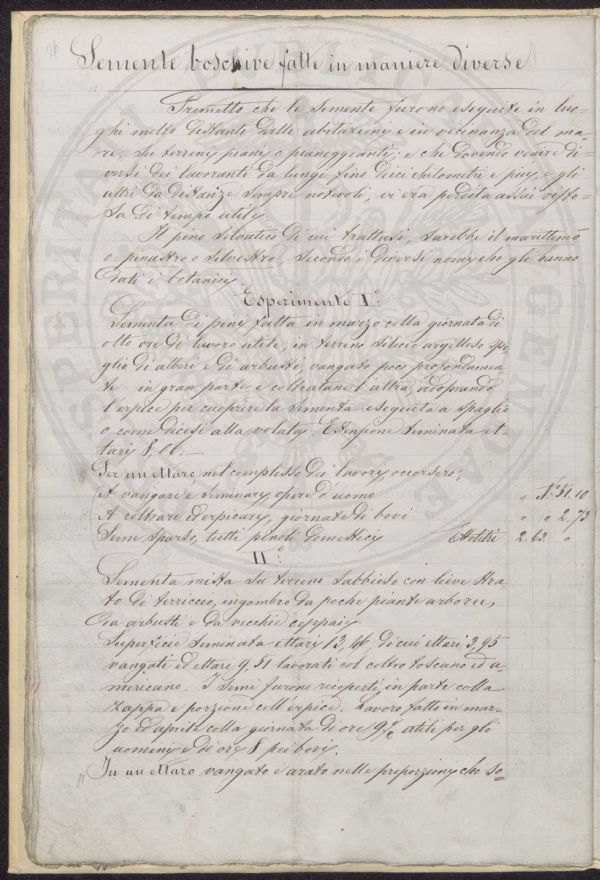 Semente boschive fatte in maniere diverse
Premetto che le semente furono eseguite in luo=
ghi molto distanti dalle abitazioni e in vicinanza del ma=
re, su terreni piani o pianeggianti; e che dovendo venire di=
versi dei lavoranti da lungi fino dieci chilometri e più, e gli
altri da distanze sempre notevoli, vi era perdita assai visto=
sa di tempo utile.
Il pino selvatico di cui trattasi, sarebbe il marittimo
o pinastro o silvestro, secondo i diversi nomi che gli hanno
dati i botanici.
Esperimento I.º
Sementa di pini fatta in marzo colla giornata di
otto ore di lavoro utile, in terreno siliceo argilloso spo=
glio di alberi e di arbusti, vangato poco profondamen=
te in gran parte e coltratane l'altra, adoprando
l'erpice per cuoprire la sementa eseguita a spaglio
o come dicesi alla volata. Estensione seminata et=
tari 8,00:—
Per un ettaro nel complesso dei lavori occorsero:
A vangare e seminare, opere d'uomo " N.º 51.10
A coltrare ed erpicare, giornate di bovi " " 2.73
Seme sparso, tutti pinoli domestici Ettolitri 2.63 "
II.º
Sementa mista su terreno sabbioso con lieve stra=
to di terriccio, ingombro da poche piante arboree,
da arbusti e da vecchie ceppaie.
Superficie seminata ettari 13,46, di cui ettari 3,95
vangati ed ettari 9,51 lavorati col coltro toscano ed a=
mericano. I semi furono ricoperti, in parte colla
zappa e porzione coll'erpice. Lavoro fatto in mar=
zo ed aprile colla giornata di ore 9½ utili per gli
uomini e di ore 8 pei bovi.
In un ettaro vangato e arato nelle proporzioni che so=